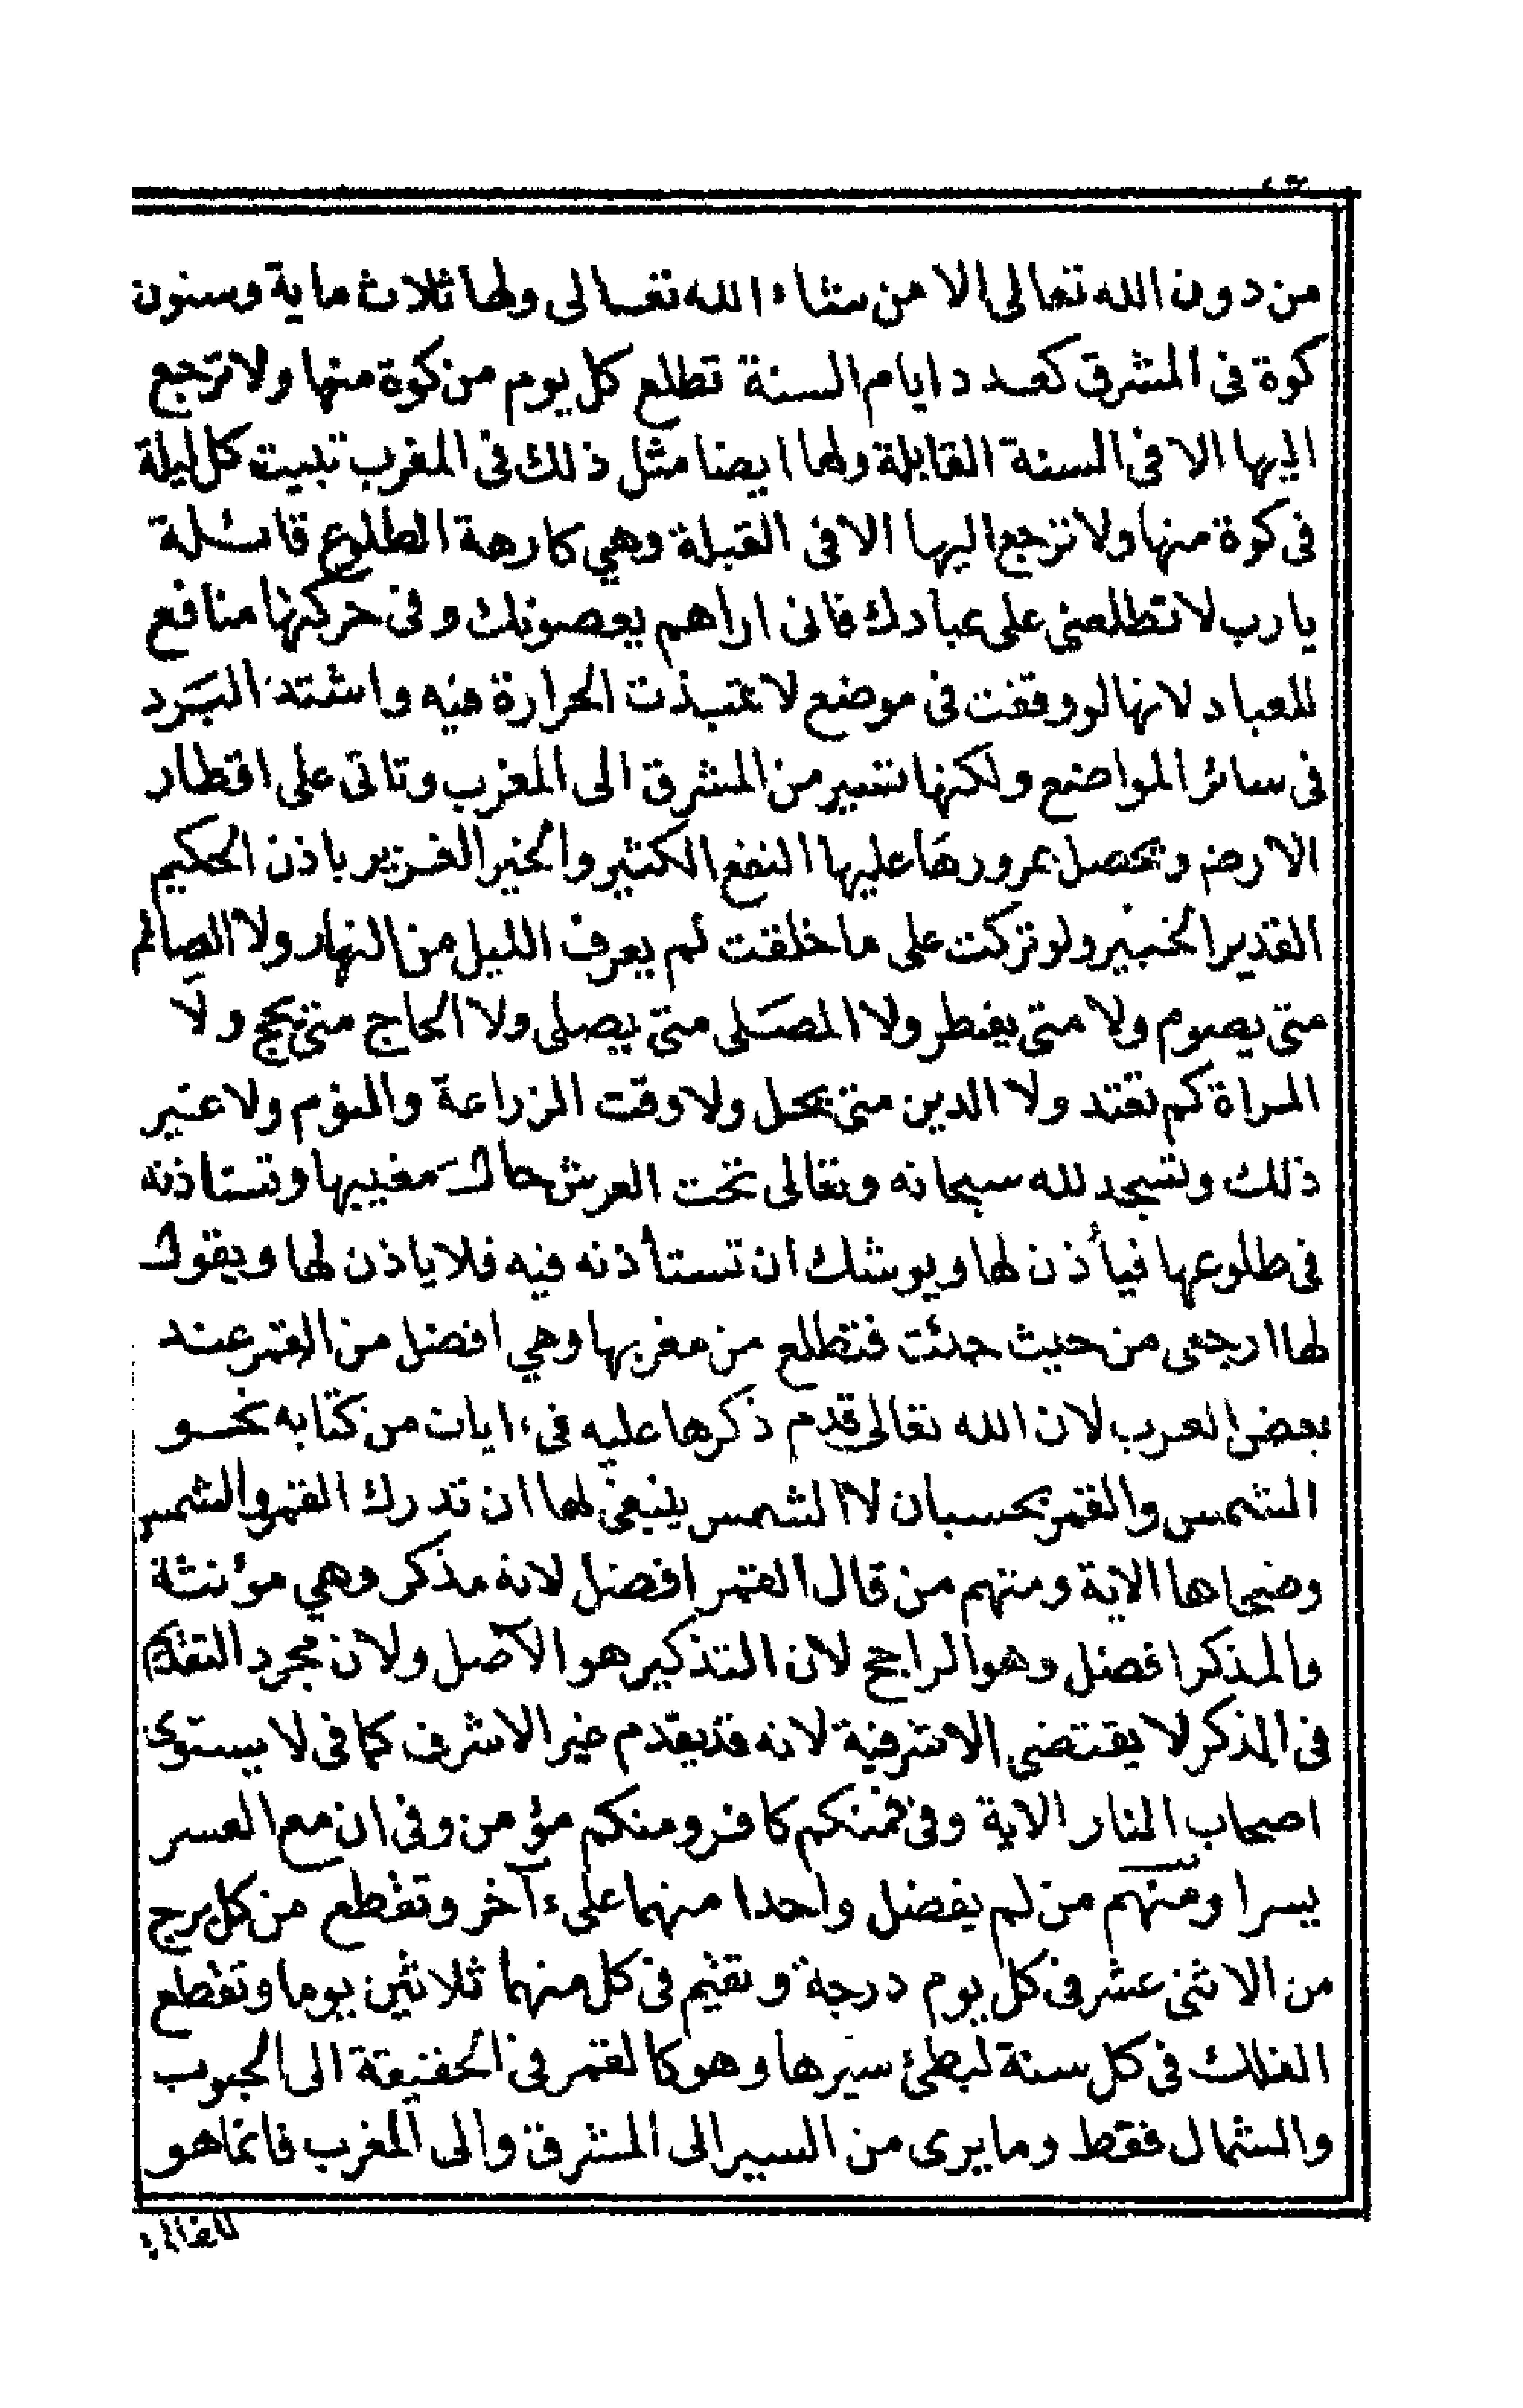 من دون الله تعالى الا من شاء الله تعالى ولها ثلاث ماية وستون
كوة فى المشرق كعدد ايام السنة تطلع كل يوم من كوة منها ولا ترجع
اليها الا فى السنة القابلة ولها ايضا مثل ذلك فى المغرب تبيت كل ليلة
فى كوة منها ولا ترجع اليها الا فى القبلة وهي كارهة الطلوع قائلة
يا رب لا تطلعنى على عبادك فانى اراهم يعصونك وفى حركتها منافع
للعباد لانها لو وقفت فى موضع لا الحرارة فيه واشتد البَرد
فى سائر المواضع ولكنها تسير من المشرق الى المغرب وتاتى على اقطار
الارض ويحصل بمرورها عليها النفع الكثير والخير الغزير باذن الحكيم
القدير الخبير ولو تركت على ما خلقت لم يعرف الليل من النهار ولا الصائم
متى يصوم ولا متى يفطر ولا المصَلى متى يصلى ولا الحاج متى يحج ولَا
المراة كم تعتد ولا الدين متى يحل ولا وقت الزراعة والنوم ولا غير
ذلك وتسجد لله سبحانه وتعالى تحت العرش حالَ مغيبها وتستاذنه
فى طلوعها فيأذن لها ويوشك ان تستأذنه فيه فلا ياذن لها ويقول
لها ارجعى من حيث جئت فتطلع من مغربها وهي افضل من القمر عند
بعض العرب لان الله تعالى قدم ذكرها عليه فى ءايات من كتابه نحو
الشمس والقمر بحسبان لا الشمس ينبغى لها ان تدرك القمر والشمس
وضحاها الاية ومنهم من قال القمر افضل لانه مذكر وهي مؤنثة
والمذكر افضل وهو الراجح لان التذكير هو الاصل ولان مجرد التقدم
فى المذكر لا يقتضى الاشرفية لانه قد يقدم غير الاشرف كما فى لا يستوى
اصحاب النار الاية وفى فمنكم كافر ومنكم مؤمن وفى ان مع العسر
يسرا ومنهم من لم يفضل واحدا منهما على ءآخر وتقطع من كل برج
من الاثنى عشر فى كل يوم درجة وتقيم فى كل منهما ثلاثين يوما وتقطع
الفلك فى كل سنة لبطئ سيرها وهو كالقمر فى الحقيقة الى الجنوب
والشمال فقط وما يرى من السير الى المشرق والى المغرب فانما هو